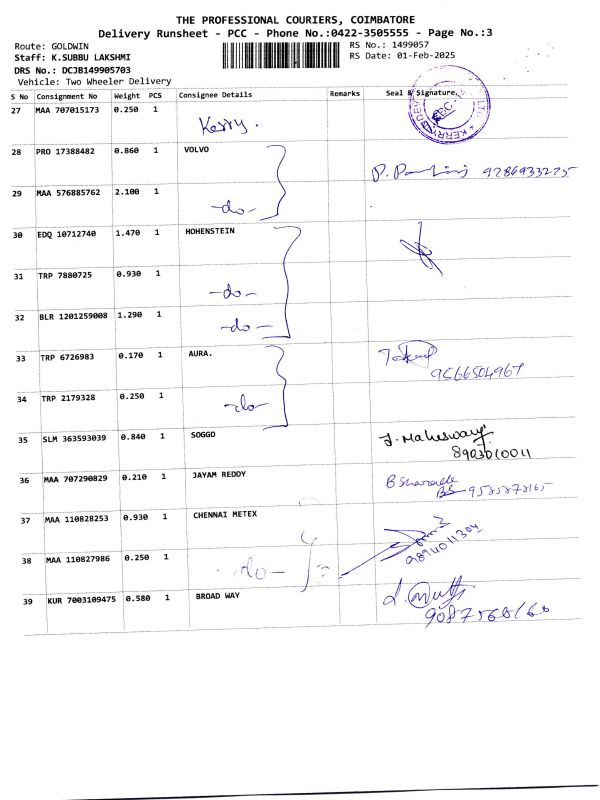 THE PROFESSIONAL COURIERS, COIMBATORE
Delivery Runsheet - PCC - Phone No.:0422-3505555 - Page No.:3
Route: GOLDWIN RS No.: 1499057
Staff: K.SUBBU LAKSHMI RS Date: 01-Feb-2025
DRS No.: DCJB149905703
Vehicle: Two Wheeler Delivery
S No Consignment No Weight PCS Consignee Details Remarks Seal & Signature
27 MAA 707015173 0.250 1 Kerry.
28 PRO 17388482 0.860 1 VOLVO
P. 9286933275
29 MAA 576885762 2.100 1 -do-
30 EDQ 10712740 1.470 1 HOHENSTEIN
31 TRP 7880725 0.930 1 -do-
32 BLR 1201259008 1.290 1 -do-
33 TRP 6726983 0.170 1 AURA.
9566504967
34 TRP 2179328 0.250 1 -do-
35 SLM 363593039 0.840 1 SOGGO J. Maheswari
8903010011
36 MAA 707290829 0.210 1 JAYAM REDDY B Sharada
BS 9585878165
37 MAA 110828253 0.930 1 CHENNAI METEX
9894011304
38 MAA 110827986 0.250 1 -do-
39 KUR 7003109475 0.580 1 BROAD WAY
9087568160